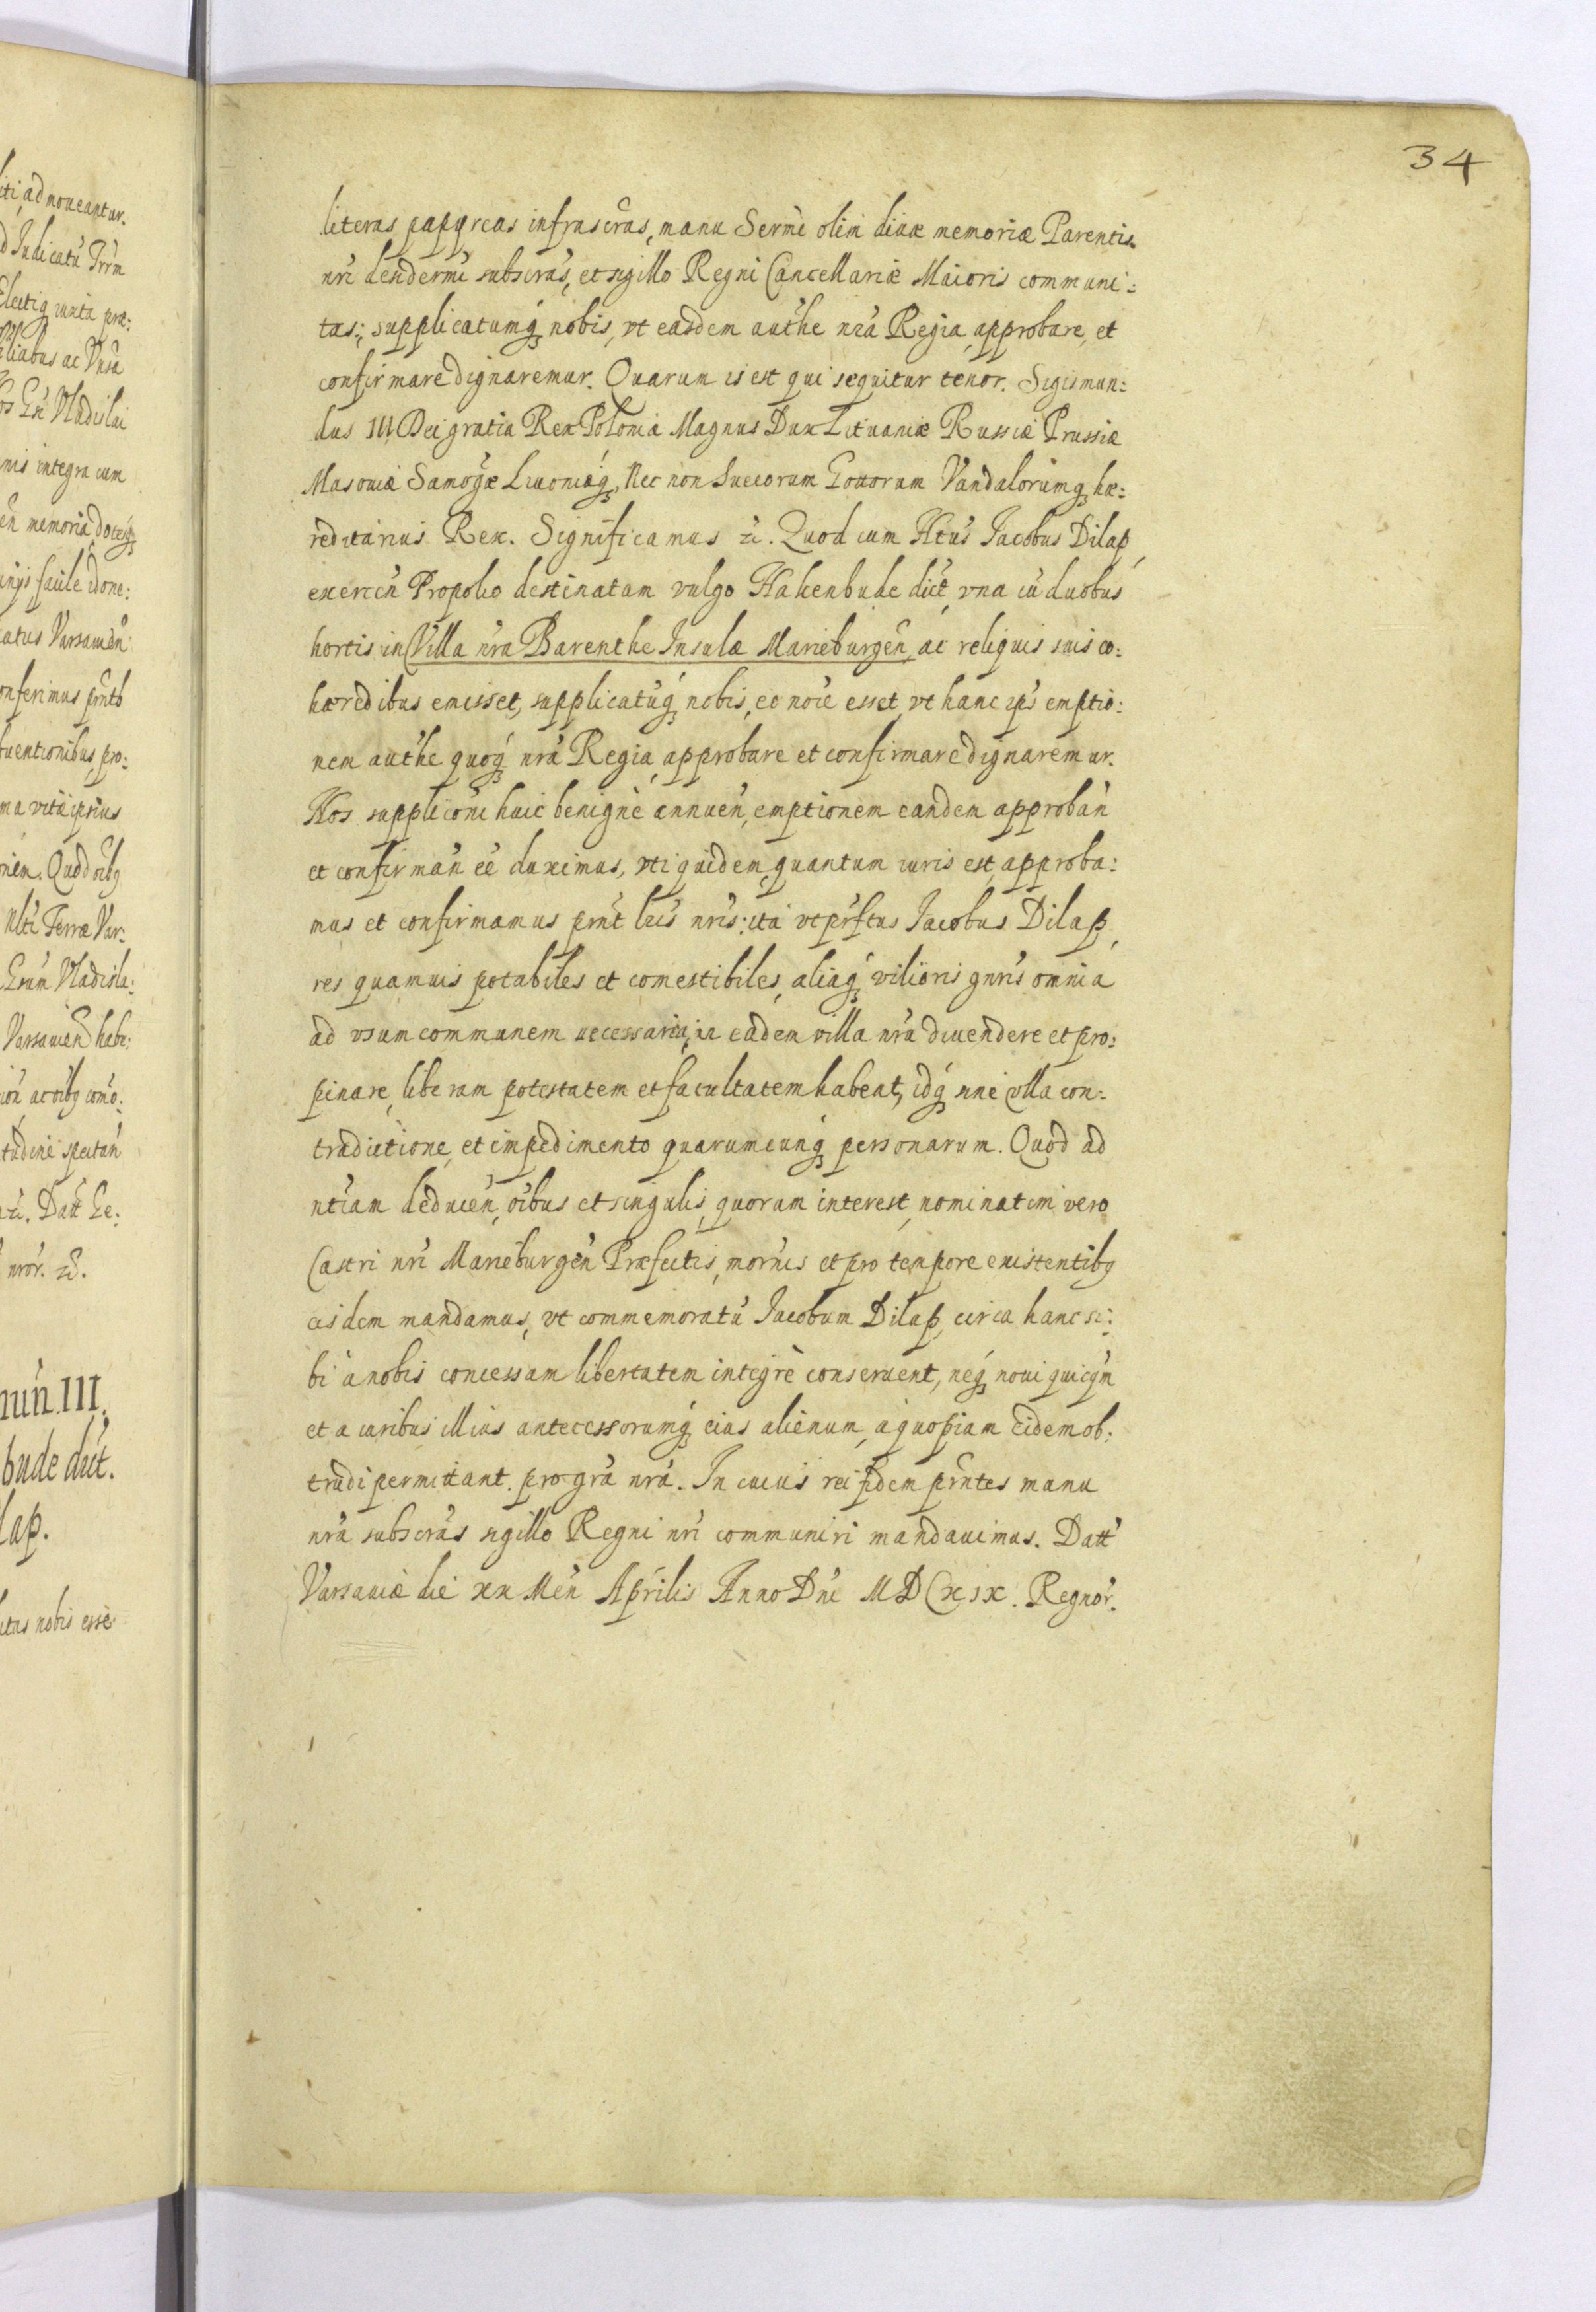 34
literas papyreas infrascras, manu Sermi olim divæ memoriæ Parentis
nri desdermi subscras, et sigillo Regni Cancellariæ Maioris communi:
tas; supplicatumq nobis, vt easdem authe nra Regia approbare, et
confirmare dignaremur. Quarum is est qui sequitur tenor. Sigismun:
dus III Dei gratia Rex Poloniæ Magnus Dux Lituaniæ Russiæ Prussiæ
Masouiæ Samogæ Liuoniæq, Nec non Suecorum Gottorum Vandalorumq hæ:
reditarius Rex. Significamus zc. Quod cum Htus Jacobus Dilaß
exercen Propolio destinatam vulgo Hakenbude dict, vna cu duobus
hortis in Villa nra Barenthe Insulæ Marieburgen, ac reliquis suis co:
hæredibus emisset, supplicatuq nobis, eo noie esset, vt hanc ips emptio:
nem authe quoq nra Regia approbare et confirmare dignaremur.
Nos suppliconi huic benignè annuen, emptionem eandem approban
et confirman ee duximus, vti quidem quantum iuris est, approba:
mus et confirmamus prnt lris nris: ita vt prfctus Jacobus Dilaß
res quamuis potabiles et comestibiles, aliaq vilioris gnris omnia
ad vsum communem necessaria, in eadem villa nra diuendere et pro:
pinare, liberam potestatem et facultatem habeat, idq sine vlla con:
tradictione, et impedimento quarumcunq personarum. Quod ad
ntiam deducen, oibus et singulis, quorum interest, nominatim vero
Castri nri Marieburgen Præfectis, mornis et pro tempore existentibq
eisdem mandamus, vt commemoratu Jacobum Dilaß, circa hanc si:
bi à nobis concessam libertatem integrè conseruent, neq noui quicqm
et a iuribus illius antecessorumq eius alienum, à quopiam eidem ob:
trudi permittant. pro gra nra. In cuius rei fidem prntes manu
nra subscras sigillo Regni nri communiri mandauimus. Datt
Varsauiæ die xx Men Aprilis Anno Dni MDCXIX. Regnor.